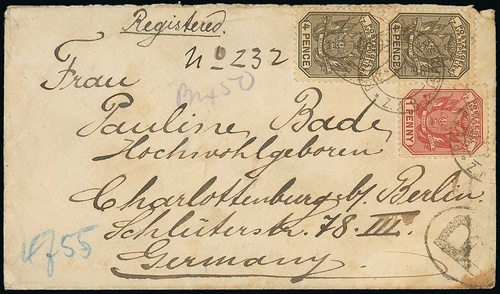 Registered.
No 232
4 PENCE 4 PENCE
Frau
Pauline Bade,
Hochwohlgeboren
1 PENNY
Charlottenburg b/ Berlin.
Schlüterstr. 78 III.
Germany